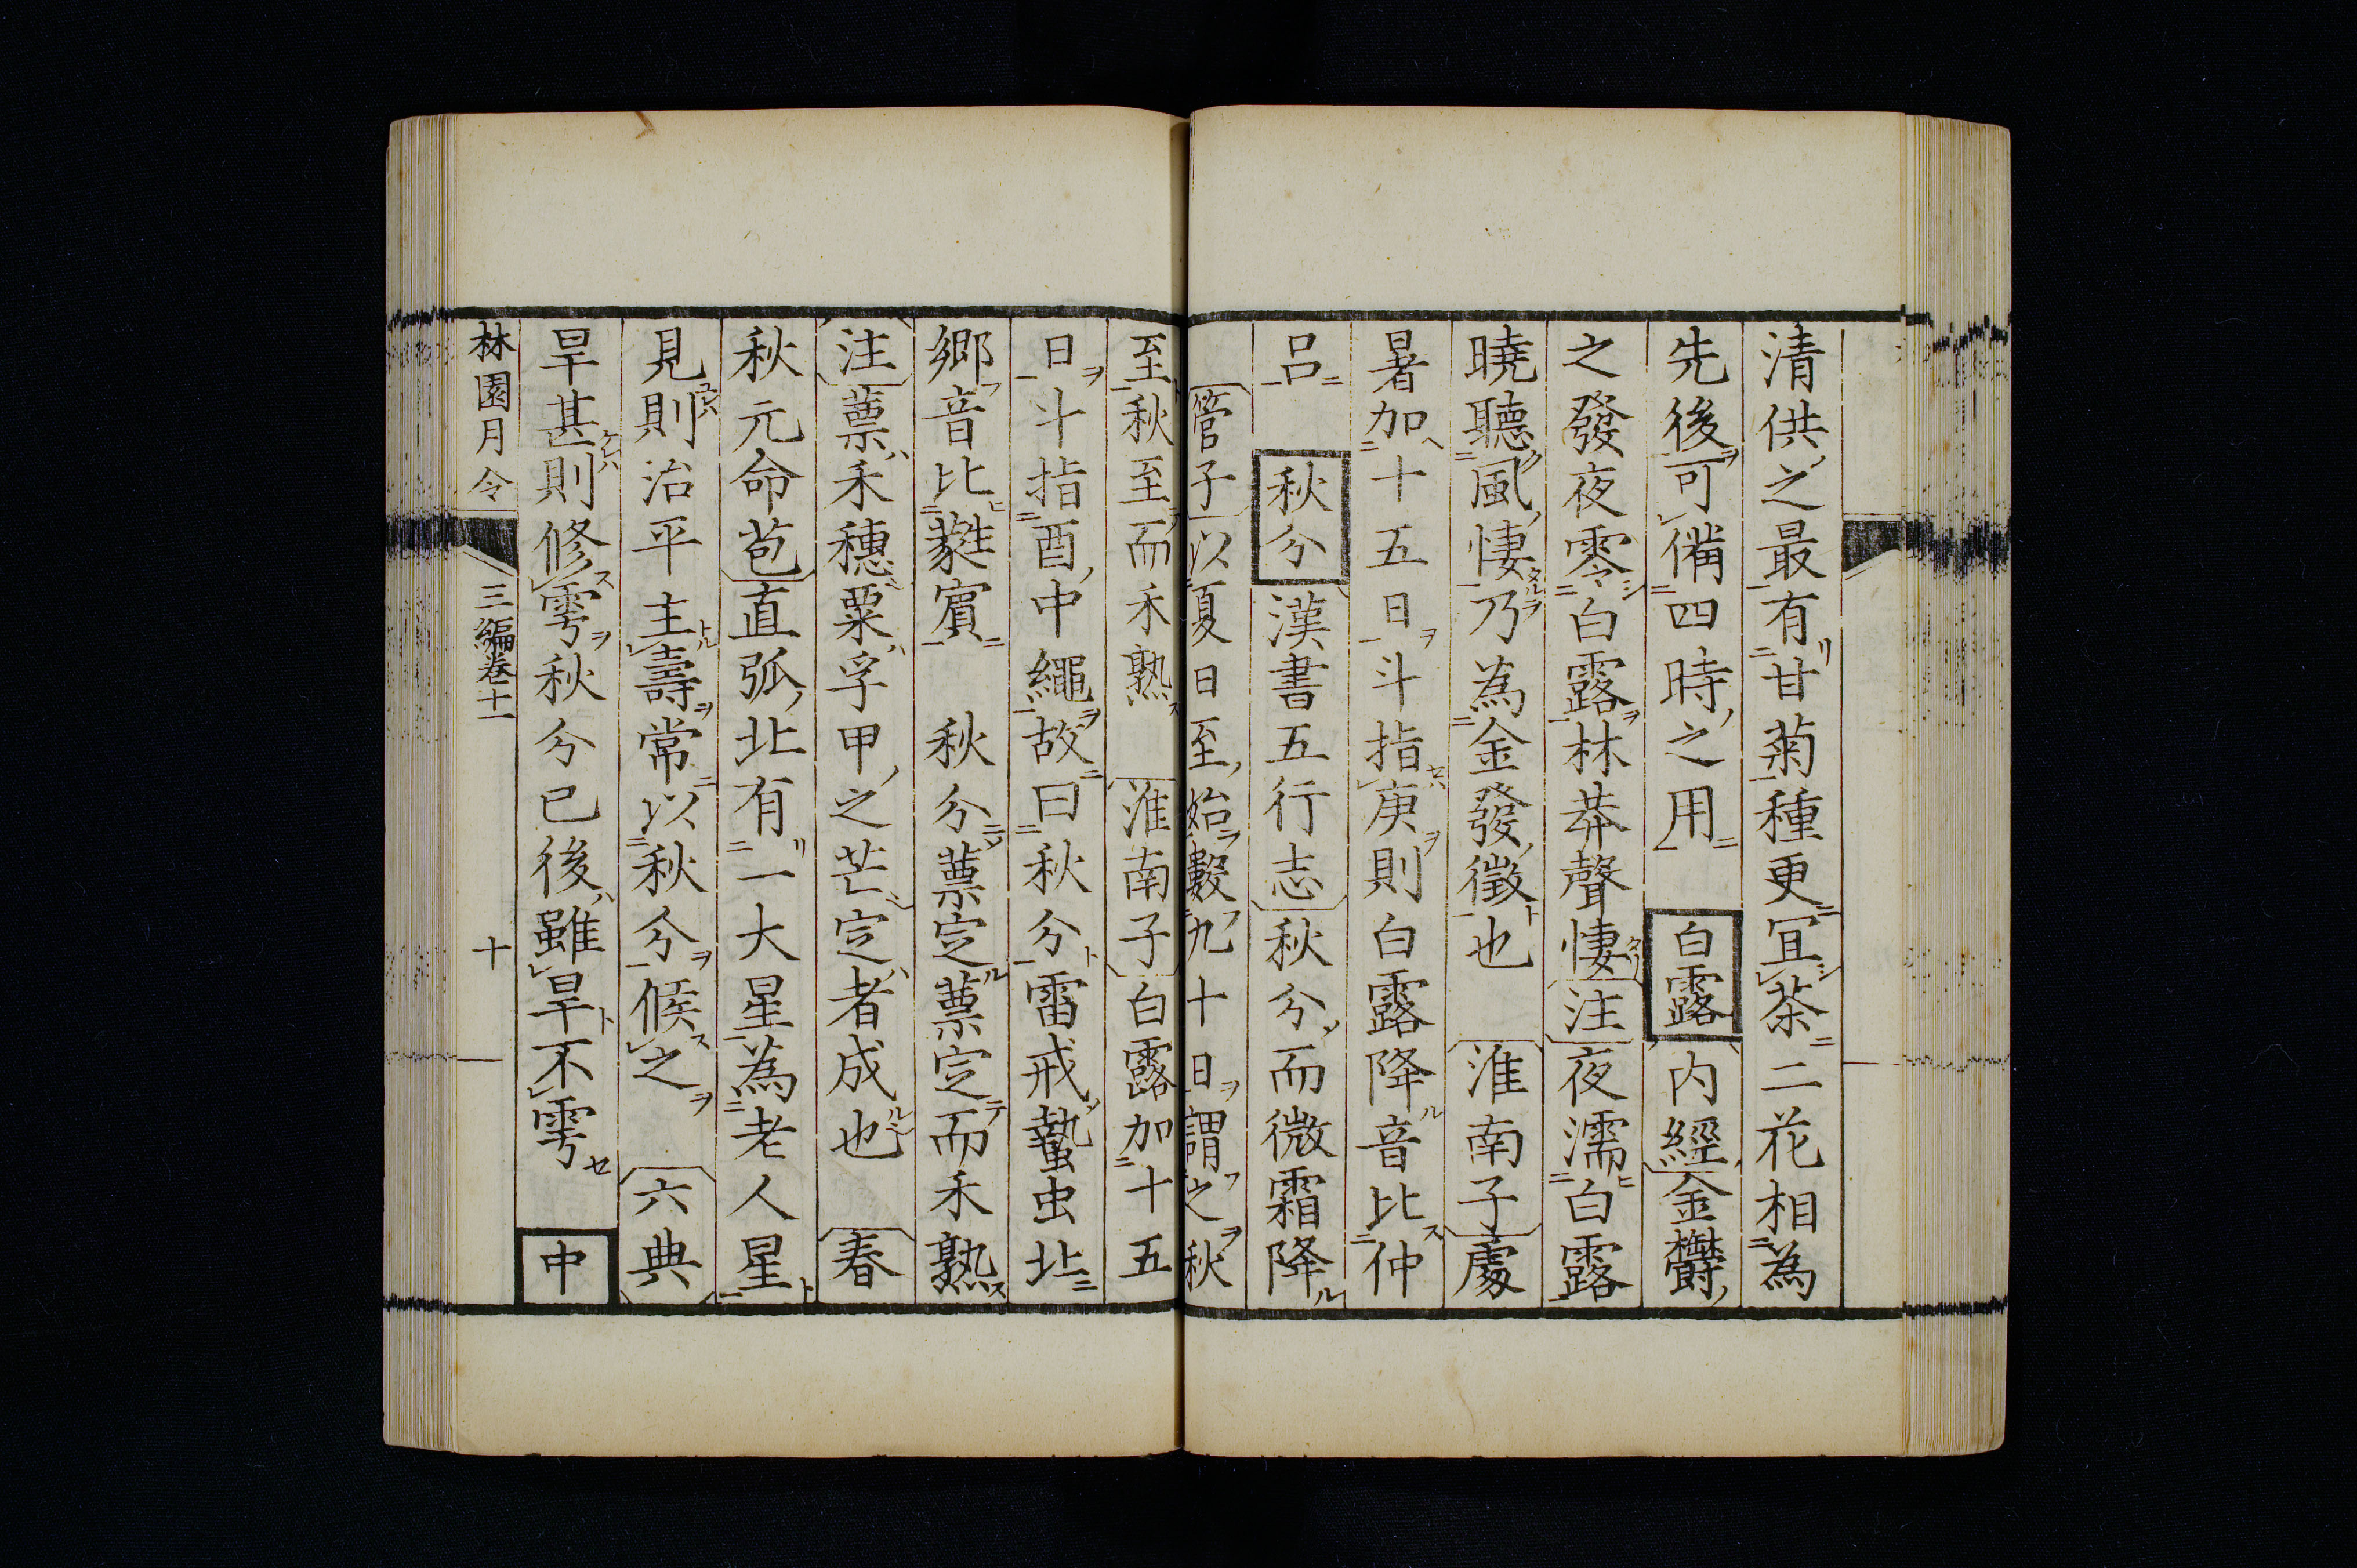 清供之最有甘菊種更冝茶二花相為
先後可備四時之用 白露 内經金欝
之發夜零白露林莽聲悽注夜濡白露
曉聽風悽乃為金發徵也 淮南子處
暑加十五日斗指庚則白露降音比仲
呂 秋分 漢書五行志秋分而微霜降
管子以夏日至始數九十日謂之秋
至秋至而禾熟 淮南子白露加十五
日斗指酉中繩故曰秋分雷戒蟄虫北
郷音比蕤賓 秋分蔈定蔈定而禾熟
注蔈禾穗粟孚甲之芒定者成也 春
秋元命苞直弧北有一大星為老人星
見則治平主壽常以秋分候之 六典
旱甚則修雩秋分已後雖旱不雩 中
林園月令 三編卷十一 十